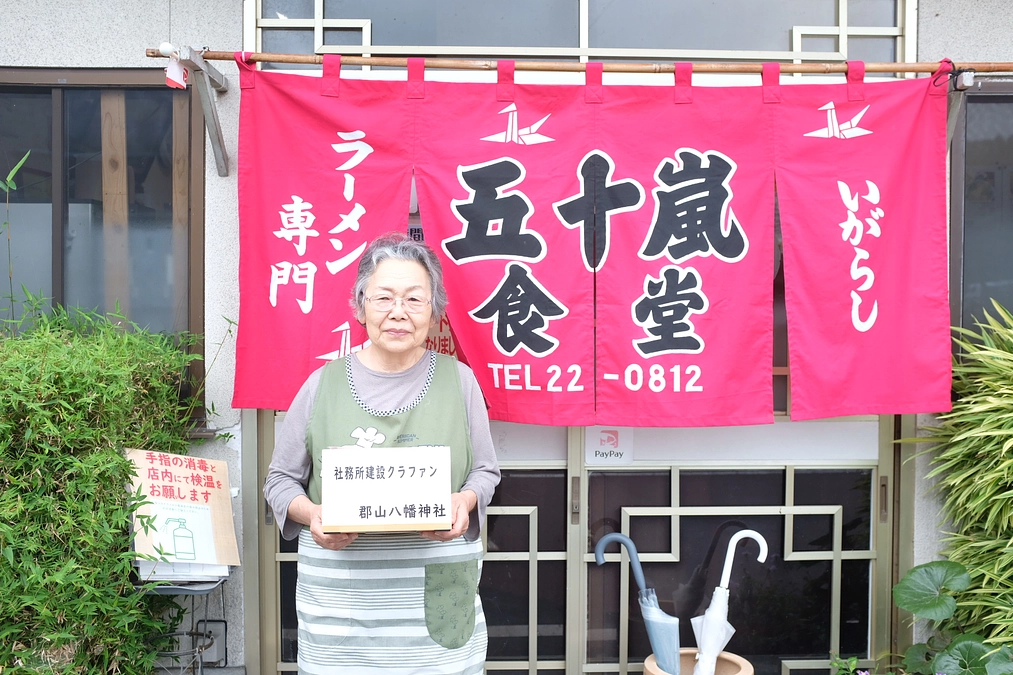 ラーメン
専門
五十嵐
食堂
TEL22-0812
いがらし
社務所建設クラファン
郡山八幡神社
手指の消毒と
店内にて検温を
お願します
PayPay